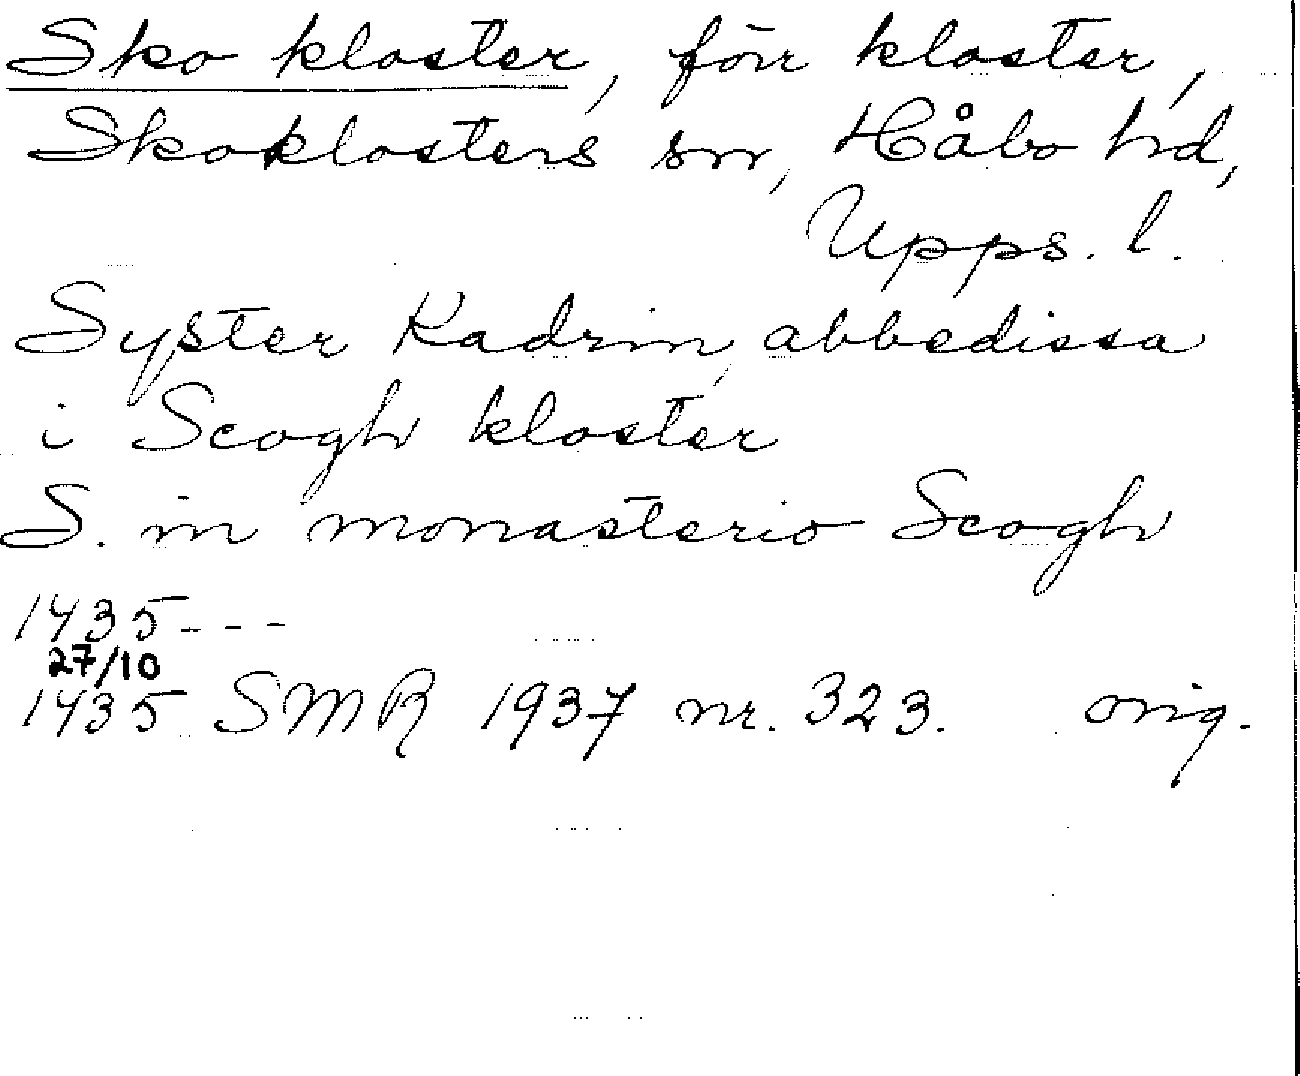 Sko kloster, förr kloster,
Skoklosters sn, Håbo hd,
Upps. l.
Syster Kadrin, abbedissa
i Scogh kloster
S. in monasterio Scogh
1435---
27/10
1435 SMR 1937 nr. 323. orig.